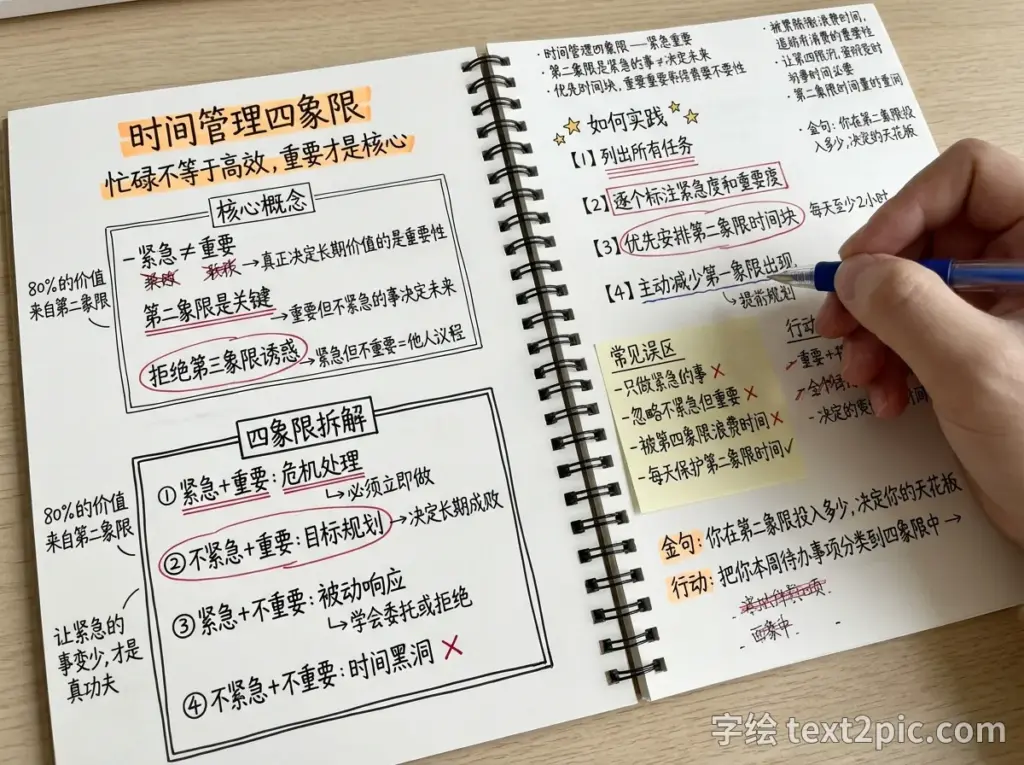 时间管理四象限
忙碌不等于高效,重要才是核心
核心概念
80%的价值
来自第二象限
-紧急≠重要
→真正决定长期价值的是重要性
第二象限是关键
→重要但不紧急的事决定未来
拒绝第三象限诱惑
→紧急但不重要=他人议程
四象限拆解
①紧急+重要:危机处理
↳必须立即做
80%的价值
来自第二象限
②不紧急+重要:目标规划
→决定长期成败
③紧急+不重要:被动响应
↳学会委托或拒绝
让紧急的
事变少,才是
真功夫
④不紧急+不重要:时间黑洞 ✗
·时间管理四象限——紧急重要
·第二象限是紧急的事≠决定未来
·优先时间块,重要重要
不要性
浪费时间,
·第二象限时间量的重
·金句:你在第二象限投
入多少,决定的天花板
如何实践
【1】列出所有任务
【2】逐个标注紧急度和重要度
【3】优先安排第二象限时间块
每天至少2小时
【4】主动减少第一象限出现
↳提前规划
常见误区
-只做紧急的事 ✗
-忽略不紧急但重要 ✗
-被第四象限浪费时间 ✗
-每天保护第二象限时间✓
行动
重要+
-决定的
金句:你在第二象限投入多少,决定你的天花板
行动:把你本周待办事项分类到四象限中→
字绘 text2pic.com